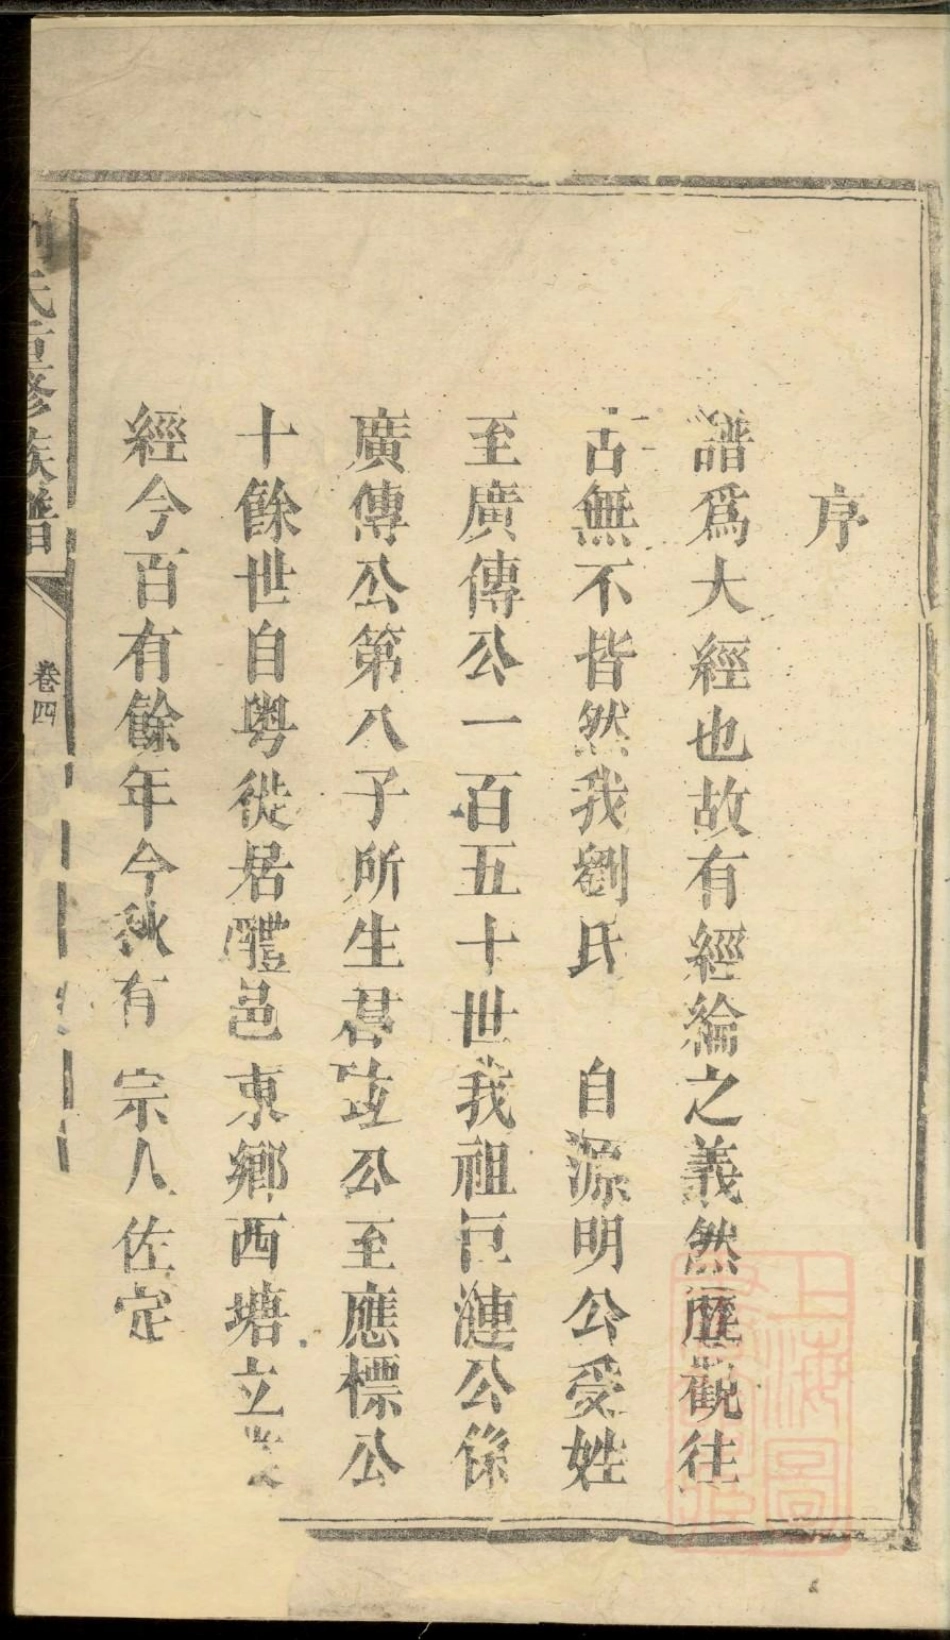 序
譜爲大經也故有經綸之義然歷觀往
古無不皆然我劉氏　自源明公受姓
至廣傳公一百五十世我祖巨漣公係
廣傳公第八子所生君　公至應標公
十餘世自粵徙居醴邑東鄉西塘立
經今百有餘年今秋有　宗人佐定
劉氏重修族譜
卷四
上海圖書館藏